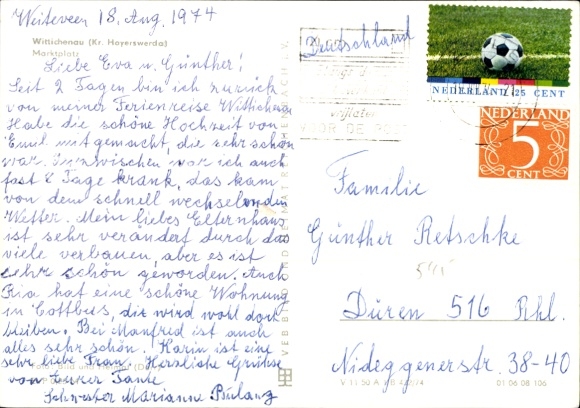 Weiteveen 18. Aug. 1974
Wittichenau (Kr. Hoyerswerda)
Marktplatz
Liebe Eva u. Günther!
Seit 2 Tagen bin ich zurück
von meiner Ferienreise Wittichenau
Habe die schöne Hochzeit von
Emil mitgemacht, die sehr schön
war. Inzwischen war ich auch
fast 2 Tage krank, das kam
von dem schnell wechselnden
Wetter. Mein liebes Elternhaus
ist sehr verändert durch das
viele verbauen, aber es ist
sehr schön geworden. Auch
Ria hat eine schöne Wohnung
in Cottbus, die wird wohl dort
bleiben. Bei Manfred ist auch
alles sehr schön. Karin ist eine
sehr liebe Frau. Herzliche Grüsse
von Eurer Tante
Schwester Marianne
Deutschland
NEDERLAND 25 CENT
NEDERLAND
5
CENT
Familie
Günther Retschke
Düren 516 Rhl.
Nideggenerstr. 38-40
01 06 08 106